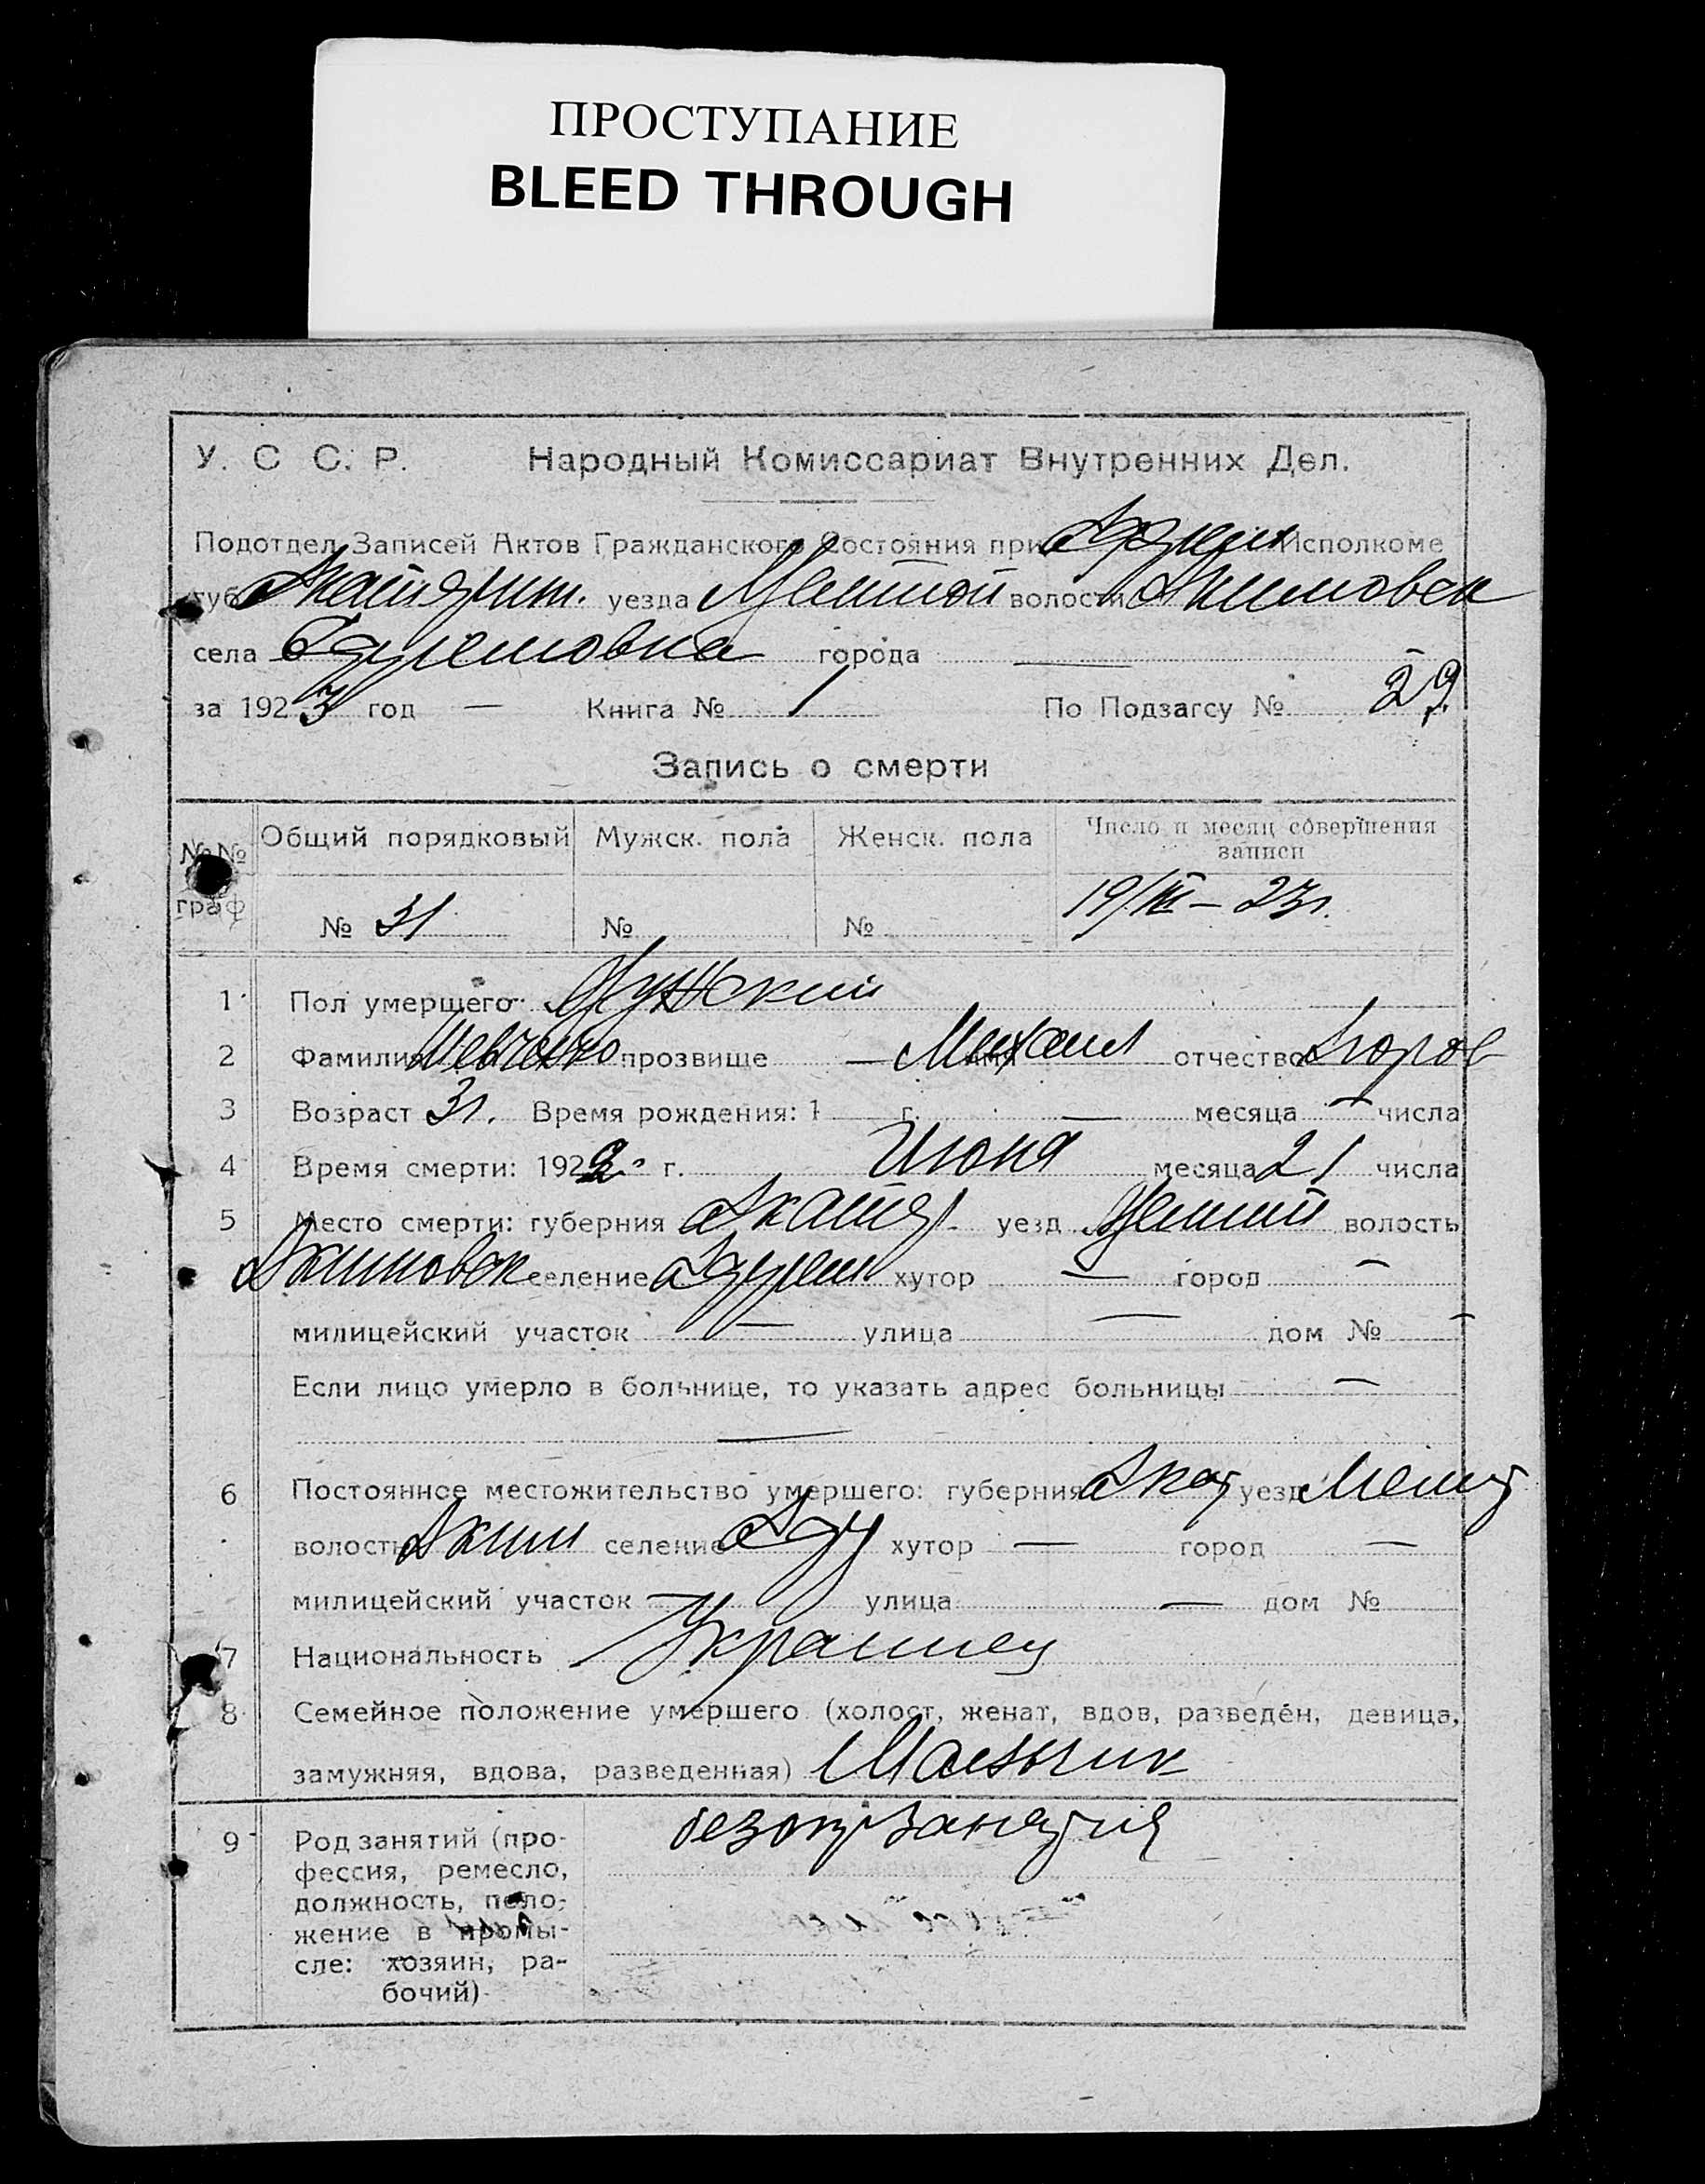 ПРОСТУПАНИЕ
BLEED THROUGH
У. С С. Р. Народный Комиссариат Внутренних Дел.
Подотдел Записей Актов Гражданского Состояния при Исполкоме
губ. уезда волости Акимовск
села города —
за 1923 год — Книга № 1 По Подзагсу № 29
Запись о смерти
№№ граф
Общий порядковый Мужск. пола Женск. пола Число и месяц совершения
записи
№ 31 № № 19/III – 23 г.
1 Пол умершего Мужской
2 Фамилия Шевченко прозвище — имя Михаил отчество
3 Возраст 3 г. Время рождения: 1 г. — месяца — числа
4 Время смерти: 1922 г. Июня месяца 21 числа
5 Место смерти: губерния уезд волость
Акимовск селение хутор — город —
милицейский участок — улица — дом № —
Если лицо умерло в больнице, то указать адрес больницы —
—
6 Постоянное местожительство умершего: губерния уезд
волость Аким селение хутор — город —
милицейский участок — улица — дом №
7 Национальность Украинец
8 Семейное положение умершего (холост, женат, вдов, разведен, девица,
замужняя, вдова, разведенная) Мальчик
9 Род занятий (про-
фессия, ремесло,
должность, поло-
жение в промы-
сле: хозяин, ра-
бочий)
занятия